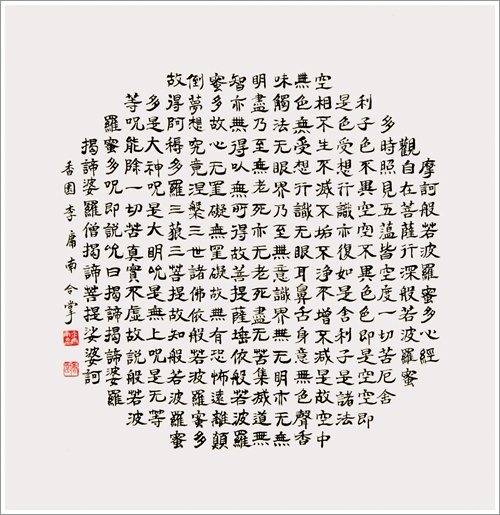 摩訶般若波羅蜜多心經
觀自在菩薩行深般若波羅蜜
多時照見五蘊皆空度一切苦厄舍
利子色不異空空不異色色即是空空即
是色受想行識亦復如是舍利子是諸法
空相不生不滅不垢不淨不增不减是故空中
無色無受想行識无眼耳鼻舌身意無色聲香
味觸法无眼界乃至無意識界無无明亦无無
明盡乃至無老死亦无老死盡无苦集滅道無
智亦無得以無所得故菩提薩埵依般若波羅
蜜多故心无罣礙無罣礙故無有恐怖遠離顛
倒夢想究竟涅槃三世諸佛依般若波羅蜜多
故得阿耨多羅三藐三菩提故知般若波羅蜜
多是大神呪是大明呪是無上呪是无等
等呪能除一切苦真實不虛故説般若波
羅蜜多呪即説呪曰揭諦揭諦婆羅
揭諦婆羅僧揭諦菩提娑婆訶
香園李庸南合掌